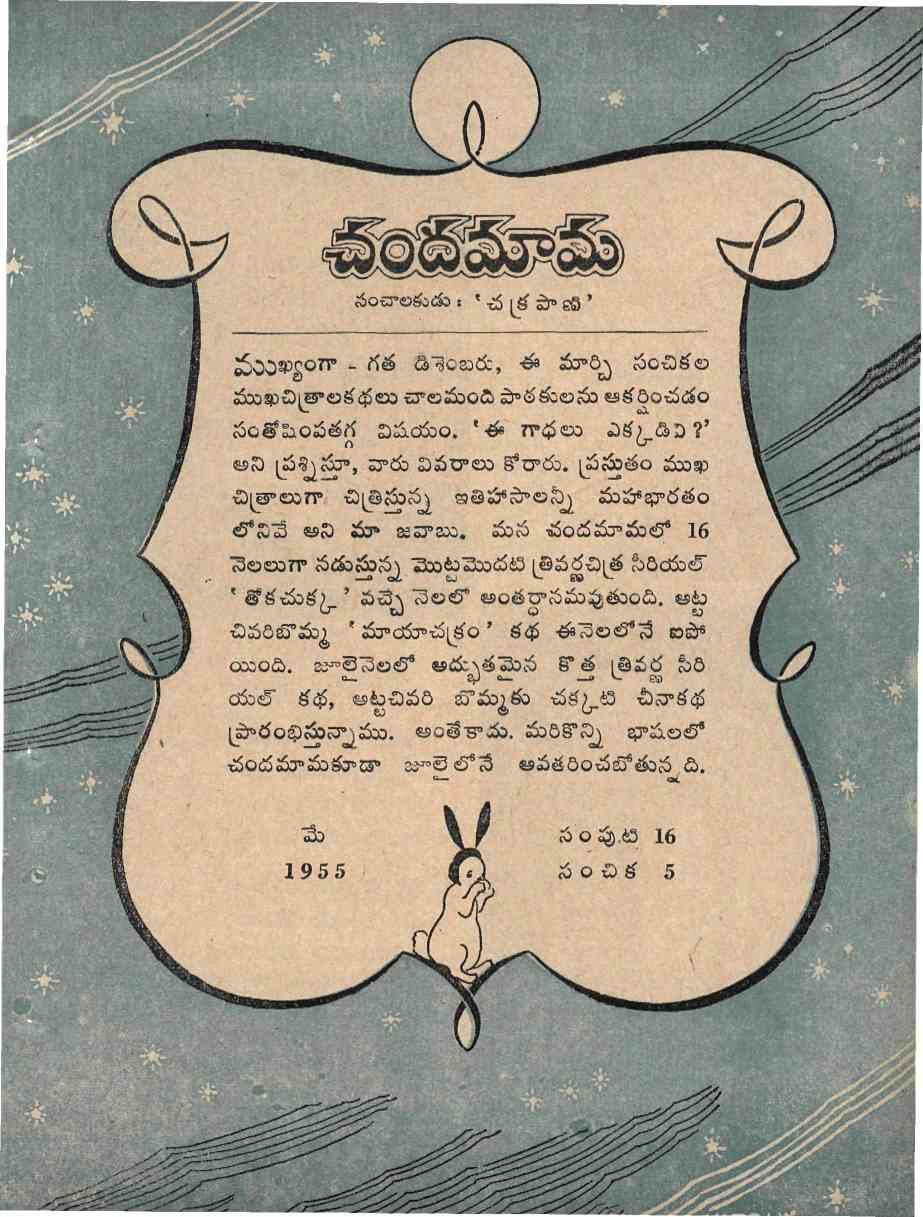 చందమామ
సంచాలకుడు : ‘చక్రపాణి’
ముఖ్యంగా - గత డిశెంబరు, ఈ మార్చి సంచికల
ముఖచిత్రాలకథలు చాలమంది పాఠకులను ఆకర్షించడం
సంతోషింపతగ్గ విషయం. ‘ఈ గాధలు ఎక్కడివి?’
అని ప్రశ్నిస్తూ, వారు వివరాలు కోరారు. ప్రస్తుతం ముఖ
చిత్రాలుగా చిత్రిస్తున్న ఇతిహాసాలన్నీ మహాభారతం
లోనివే అని మా జవాబు. మన చందమామలో 16
నెలలుగా నడుస్తున్న మొట్టమొదటి త్రివర్ణచిత్ర సీరియల్
‘తోకచుక్క’ వచ్చే నెలలో అంతర్ధానమవుతుంది. అట్ట
చివరిబొమ్మ ‘మాయాచక్రం’ కథ ఈనెలలోనే ఐపో
యింది. జూలైనెలలో అద్భుతమైన కొత్త త్రివర్ణ సీరి
యల్ కథ, అట్టచివరి బొమ్మకు చక్కటి చీనాకథ
ప్రారంభిస్తున్నాము. అంతేకాదు. మరికొన్ని భాషలలో
చందమామకూడా జూలైలోనే అవతరించబోతున్నది.
మే
1955
సంపుటి 16
సంచిక 5